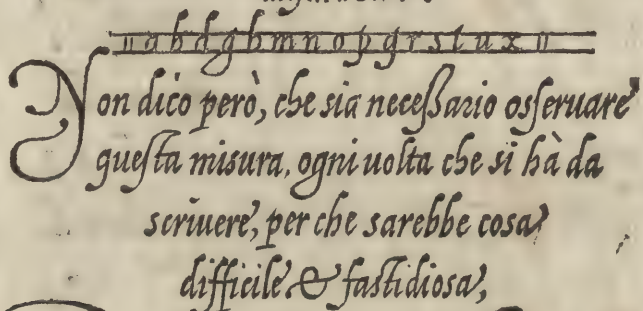 ıı a b d g h m n o p q r s t u x ıı
Non dico però, che sia neceßario osseruare
questa misura, ogni uolta che si hà da
scriuere, per che sarebbe cosa
difficile & fastidiosa,